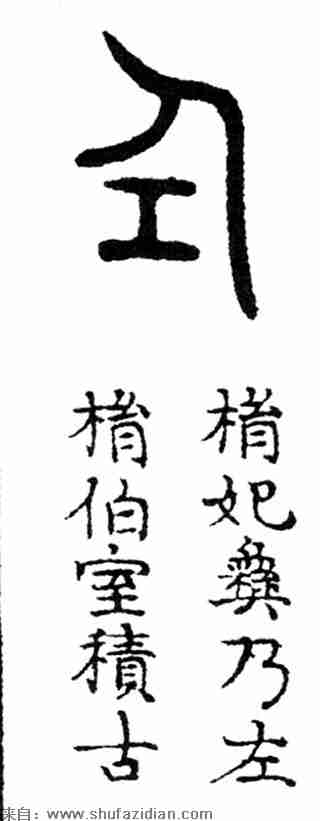 左
妃彝乃左
伯室積古
来自：www.shufazidian.com